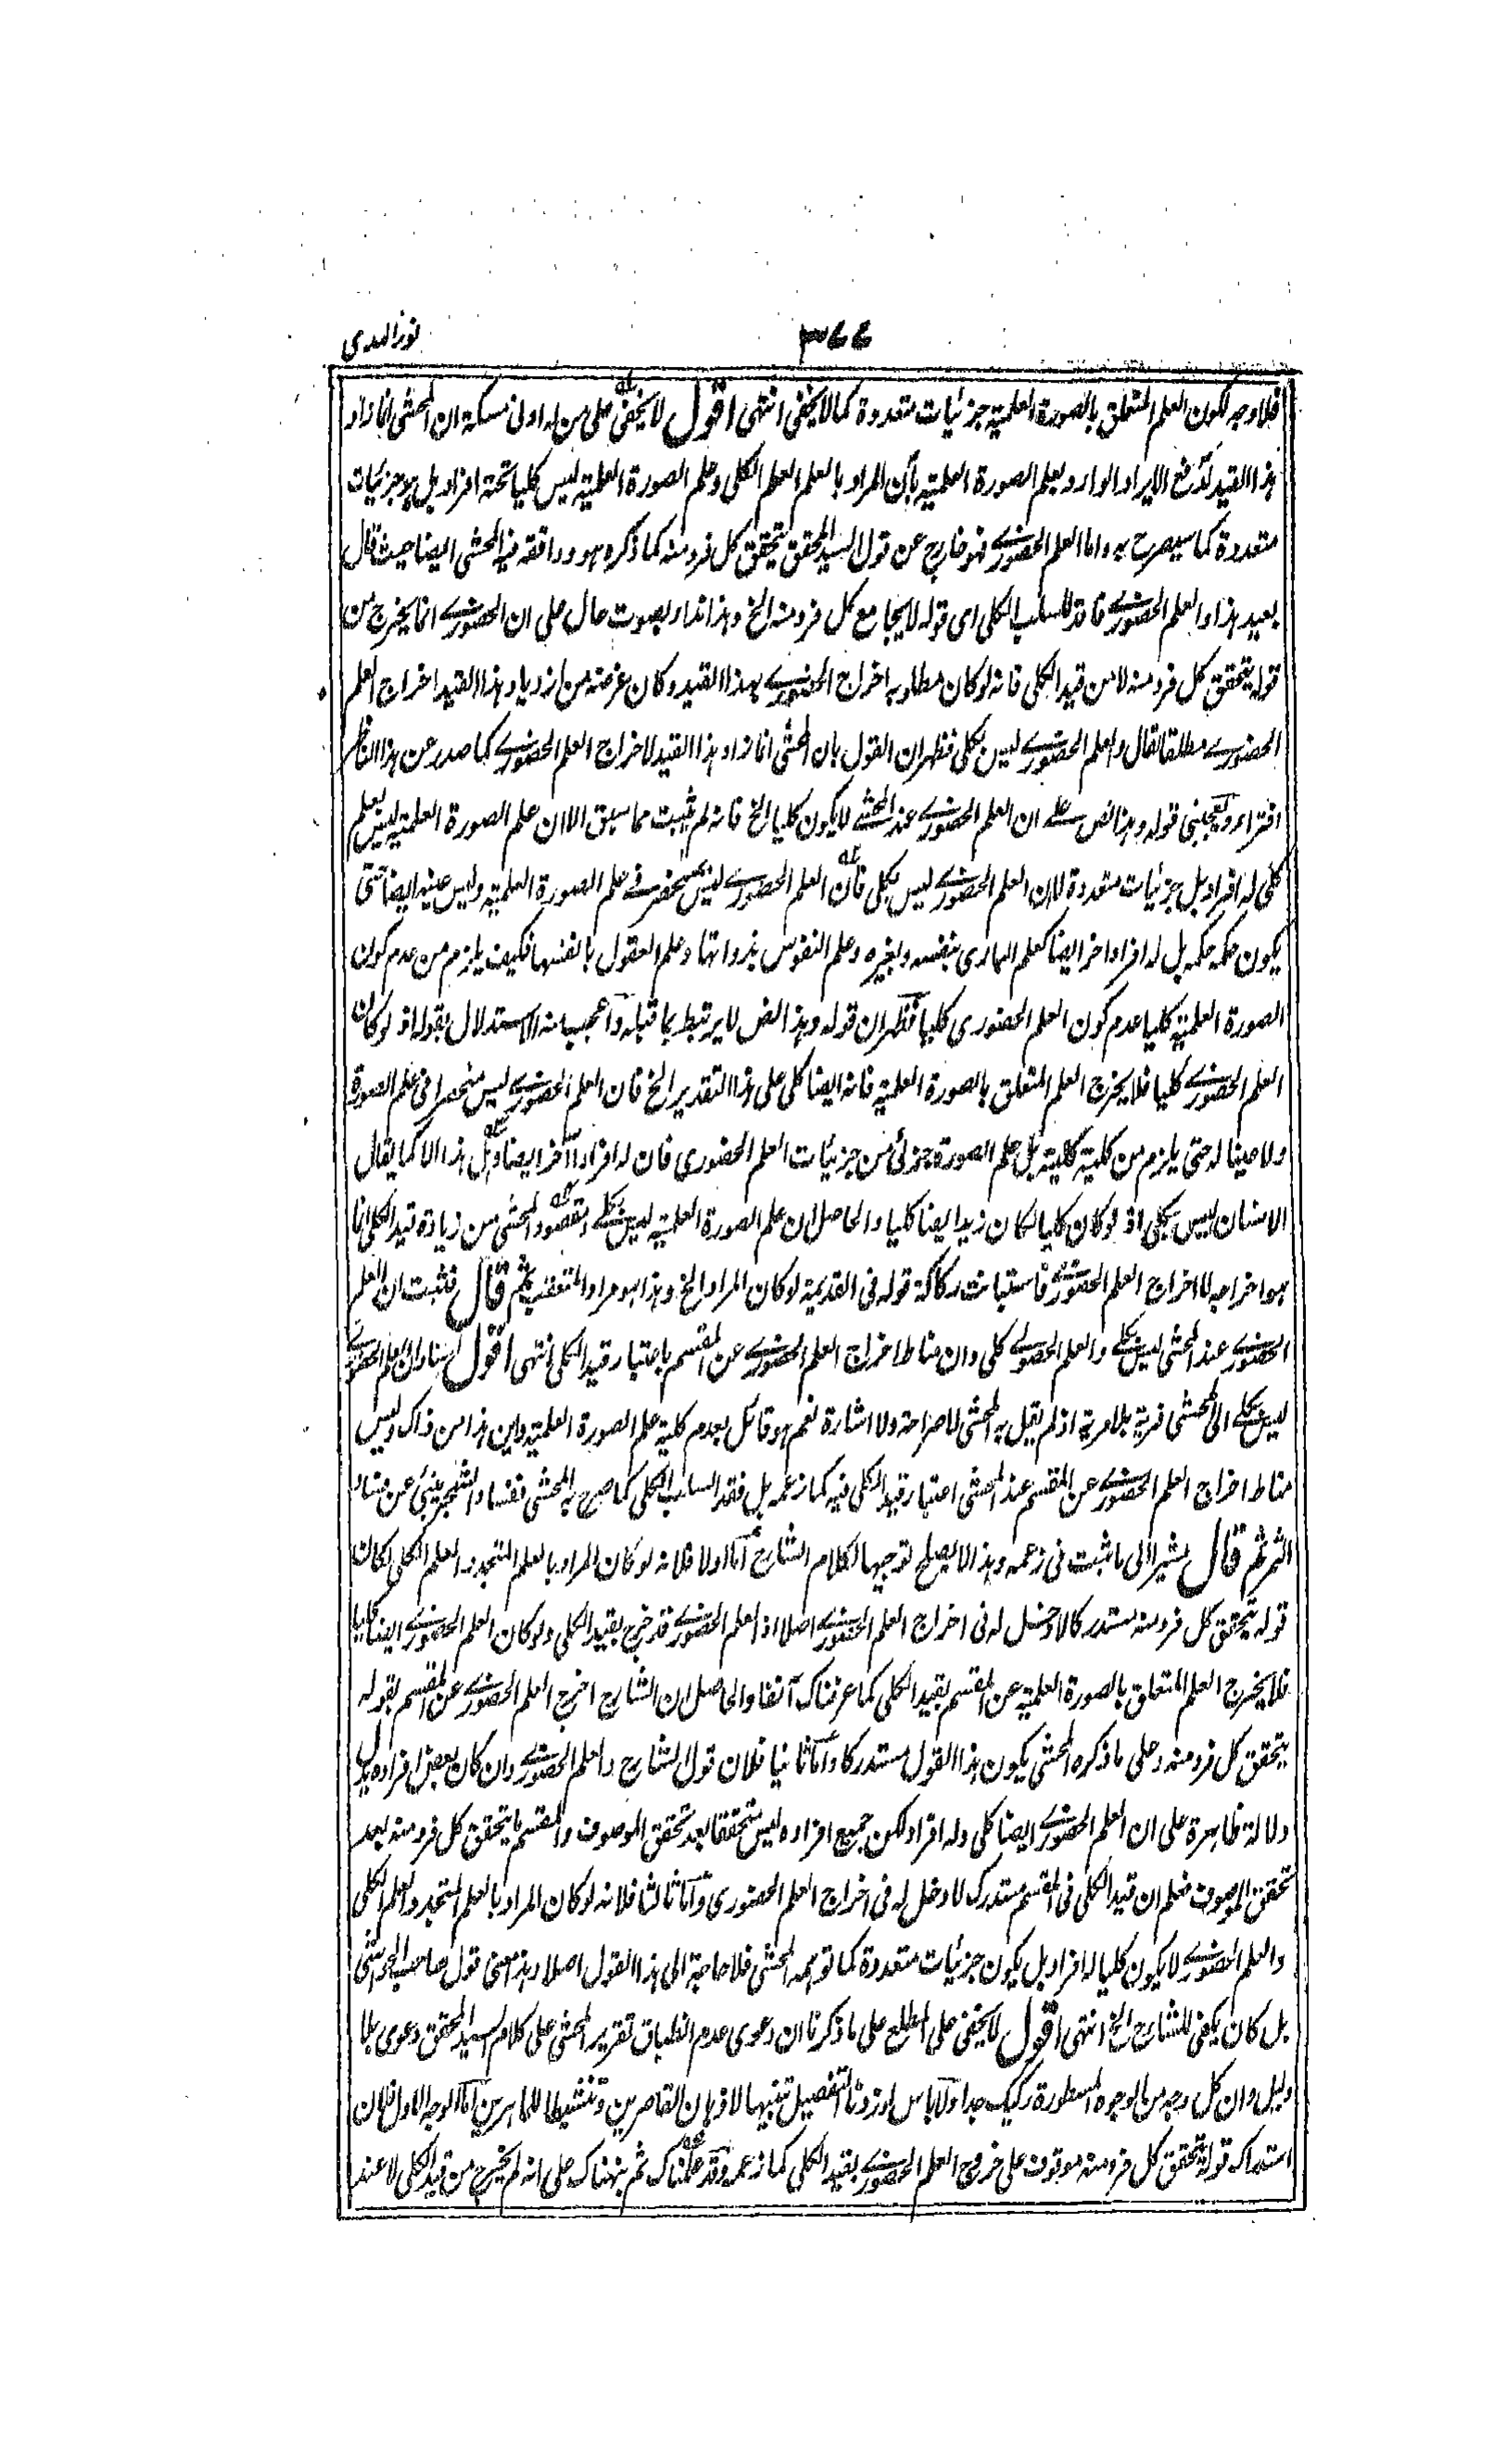 نور الهدى
٣٧٧
فلا وجه لكون العلم المتعلق بالصورة العلمية جزئيات متعددة كما لا يخفى انتهى اقول لا يخفى على من له ادنى مسكة ان المحشى انما زاد
هذا القيد لدفع الايراد الوارد بعلم الصورة العلمية بان المراد بالعلم العلم الكلى وعلم الصورة العلمية ليس كليا تحته افراد بل هو جزئيات
متعددة كما سيصرح به واما العلم الحضورى فهو خارج عن قول السيد المحقق يتحقق كل فرد منه كما ذكره هو ووافقه فيه المحشى ايضا حيث قال
بعيد هذا والعلم الحضورى فاقد للسلب الكلى اى قوله لا يجامع كل فرد منه الخ وهذا نداء بصوت عال على ان الحضورى انما يخرج من
قوله يتحقق كل فرد منه لا من قيد الكلى فانه لو كان مطلوبه اخراج الحضورى بهذا القيد وكان غرضه من ازدياد هذا القيد اخراج العلم
الحضورى مطلقا لقال والعلم الحضورى ليس بكلى فظهر ان القول بان المحشى انما زاد هذا القيد لاخراج العلم الحضورى كما صدر عن هذا الناظر
افتراء ويعجبنى قوله وهذا نص على ان العلم الحضورى عند المحشى لا يكون كليا الخ فانه لم يثبت مما سبق الا ان علم الصورة العلمية ليس بعلم
كلى له افراد بل جزئيات متعددة لا ان العلم الحضورى ليس بكلى فان العلم الحضورى ليس بمنحصر فى علم الصورة العلمية وليس عينه ايضا حتى
يكون حكمه حكمه بل له افراد اخر ايضا كعلم البارى بنفسه وبغيره وعلم النفوس بذواتها وعلم العقول بانفسها فكيف يلزم من عدم كون
الصورة العلمية كليا عدم كون العلم الحضورى كليا فظهر ان قوله وهذا نص لا يرتبط بما قبله واعجب منه الاستدلال بقوله اذ لو كان
العلم الحضورى كليا فلا يخرج العلم المتعلق بالصورة العلمية فانه ايضا كلى على هذا التقدير الخ فان العلم الحضورى ليس منحصرا فى علم الصورة
ولا عينا له حتى يلزم من كليته كليته بل علم الصورة جزئى من جزئيات العلم الحضورى فان له افرادا اخر ايضا وهل هذا الا كما يقال
الانسان ليس بكلى اذ لو كان كليا لكان زيد ايضا كليا والحاصل ان علم الصورة العلمية ليس بكلى ومقصود المحشى من زيادة قيد الكلى انما
هو اخراجه لا اخراج العلم الحضورى فاستبانت ركاكة قوله فى القديمة لو كان المراد الخ وهذا هو مراد المتعقب ثم قال فثبت ان العلم
الحضورى عند المحشى ليس بكلى والعلم الحصولى كلى وان مناط اخراج العلم الحضورى عن المقسم باعتبار قيد الكلى انتهى اقول اسناد ان العلم الحضورى
ليس بكلى الى المحشى فرية بلا مرية اذ لم يقل به المحشى لا صراحة ولا اشارة نعم هو قائل بعدم كلية علم الصورة العلمية واين هذا من ذاك وليس
مناط اخراج العلم الحضورى عن المقسم عند المحشى اعتبار قيد الكلى فيه كما زعمه بل فقد السلب الكلى كما صرح به المحشى ففساد الشجر ينبئ عن فساد
الثمر ثم قال مشيرا الى ما ثبت فى زعمه وهذا لا يصلح توجيها لكلام الشارح اما اولا فلانه لو كان المراد بالعلم المتجدد العلم الكلى لكان
قوله يتحقق كل فرد منه مستدركا لا دخل له فى اخراج العلم الحضورى اصلا اذ العلم الحضورى قد خرج بقيد الكلى ولو كان العلم الحضورى ايضا كليا
فلا يخرج العلم المتعلق بالصورة العلمية عن المقسم بقيد الكلى كما عرفناك آنفا والحاصل ان الشارح اخرج العلم الحضورى عن المقسم بقوله
يتحقق كل فرد منه وعلى ما ذكره المحشى يكون هذا القول مستدركا واما ثانيا فلان قول الشارح والعلم الحضورى وان كان بعض افراده يدل
دلالة ظاهرة على ان العلم الحضورى ايضا كلى وله افراد لكن جميع افراده ليس متحققا بعد تحقق الموصوف والمقسم ما يتحقق كل فرد منه بعد
تحقق الموصوف فعلم ان قيد الكلى فى المقسم مستدرك لا دخل له فى اخراج العلم الحضورى واما ثالثا فلانه لو كان المراد بالعلم المتجدد العلم الكلى
والعلم الحضورى لا يكون كليا له افراد بل يكون جزئيات متعددة كما توهمه المحشى فلا حاجة الى هذا القول اصلا وهذا معنى قول صاحب الحواشى
بل كان يكفى للشارح الخ انتهى اقول لا يخفى على المطلع على ما ذكرنا ان دعوى عدم انطباق تقرير المحشى على كلام السيد المحقق دعوى بلا
دليل وان كل وجه من الوجوه المسطورة ركيك جدا ولا باس لو زدنا التفصيل تنبيها لاذهان القاصرين وتنشيطا للماهرين اما الوجه الاول فلان
استدراك قوله يتحقق كل فرد منه موقوف على خروج العلم الحضورى بقيد الكلى كما زعمه وقد علمناك ثم نبهناك على انه لم يخرج من قيد الكلى لا عند